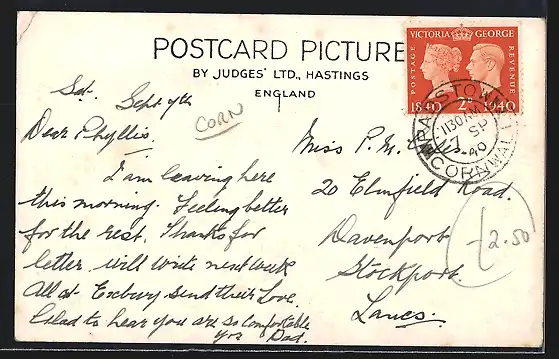 POSTCARD PICTURE
BY JUDGES' LTD., HASTINGS
ENGLAND
VICTORIA GEORGE
POSTAGE
REVENUE
1840 2D 1940
PADSTOW
1130AM
7 SP
40
CORNWALL
CORN
Sat. Sept 7th
Dear Phyllis
I am leaving here
this morning. Feeling better
for the rest. Thanks for
letter, will write next week
All at Exbury send their Love.
Glad to hear you are so comfortable
Yrs Dad.
Miss P. M.
20 Elmfield Road.
Davenport
Stockport.
Lancs.
2.50